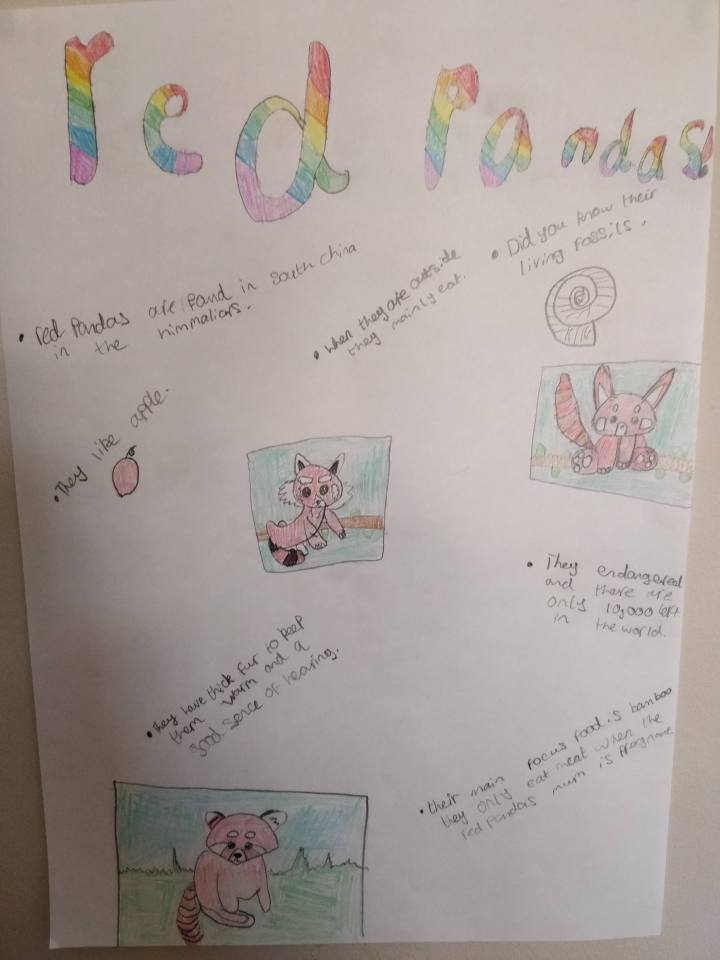 red Pandas!
• red Pandas are Found in South China
in the himmaliars.
• when they are outside
they mainly eat.
• Did you know their
living Fossils.
• They like apple.
• They endangered
and there are
only 10,000 left
in the world.
• They have thick fur to keep
them warm and a
good sence of hearing.
• their main focus food is bamboo
they only eat meat when the
red Pandas mum is